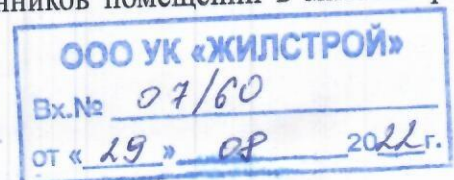 нников помещений в
ООО УК «ЖИЛСТРОЙ»
Вх.№ 07/60
от « 29 » 08 2022 г.